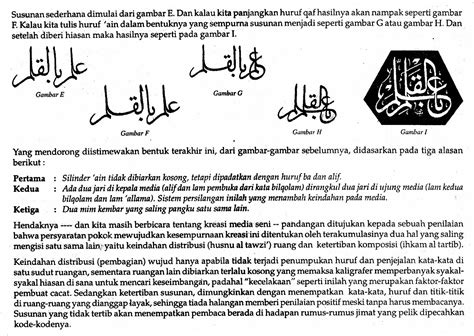 Susunan sederhana dimulai dari gambar E. Dan kalau kita panjangkan huruf qaf hasilnya akan nampak seperti gambar
F. Kalau kita tulis huruf 'ain dalam bentuknya yang sempurna susunan menjadi seperti gambar G atau gambar H. Dan
setelah diberi hiasan maka hasilnya seperti pada gambar I.
علم بالقلم
علم بالقلم
علم بالقلم
علم بالقلم
علم بالقلم
Gambar E
Gambar F
Gambar G
Gambar H
Gambar I
Yang mendorong diistimewakan bentuk terakhir ini, dari gambar-gambar sebelumnya, didasarkan pada tiga alasan
berikut :
Pertama : Silinder 'ain tidak dibiarkan kosong, tetapi dipadatkan dengan huruf ba dan alif.
Kedua : Ada dua jari di kepala media (alif dan lam pembuka dari kata bilqolam) dirangkul dua jari di ujung media (lam kedua
bilqolam dan lam 'allama). Sistem persilangan inilah yang menambah keindahan pada media.
Ketiga : Dua mim kembar yang saling pangku satu sama lain.
Hendaknya ---- dan kita masih berbicara tentang kreasi media seni -- pandangan ditujukan kepada sebuah penilaian
bahwa persyaratan pokok mewujudkan kesempurnaan kreasi ini ditentukan oleh terakumulasinya dua hal yang saling
mengisi satu sama lain; yaitu keindahan distribusi (husnu al tawzi') ruang dan ketertiban komposisi (ihkam al tartib).
Keindahan distribusi (pembagian) wujud hanya apabila tidak terjadi penumpukan huruf dan penjejalan kata-kata di
satu sudut ruangan, sementara ruangan lain dibiarkan terlalu kosong yang memaksa kaligrafer memperbanyak syakal-
syakal hiasan di sana untuk mencari keseimbangan, padahal "kecelakaan" seperti inilah yang merupakan faktor-faktor
pembuat cacat. Sedangkan ketertiban susunan, dimungkinkan dengan menempatkan kata-kata, huruf dan titik-titik
di ruang-ruang yang dianggap layak, sehingga tiada halangan memberi penilaian positif meski tanpa harus membacanya.
Susunan yang tidak tertib akan menempatkan pembaca berada di hadapan rumus-rumus jimat yang pelik dipecahkan
kode-kodenya.